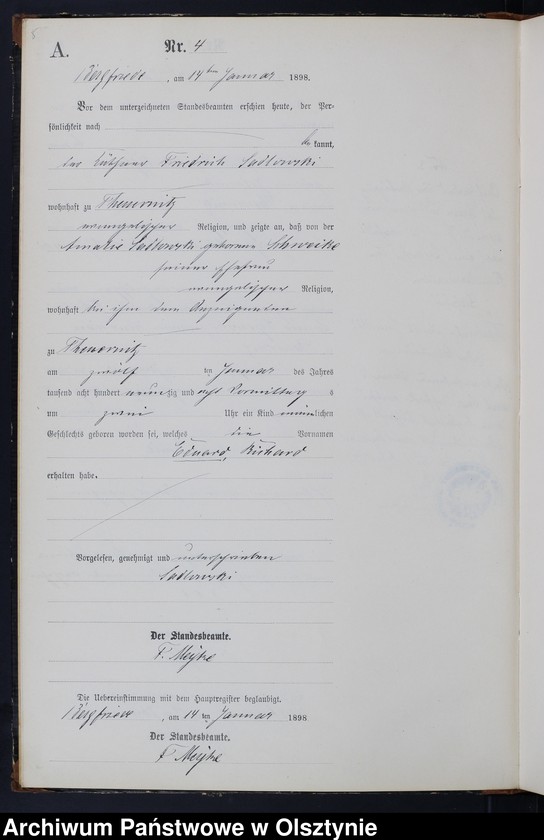 5
A.
Nr. 4
Bergfriede, am 14ten Januar 1898.
Vor dem unterzeichneten Standesbeamten erschien heute, der Per-
sönlichkeit nach
be kannt,
der Käthner Friedrich Sadlowski
wohnhaft zu Theuernitz
evangelischer Religion, und zeigte an, daß von der
Amalie Sadlowski geborene Schweike
seiner Ehefrau
evangelischer Religion,
wohnhaft bei ihm dem Anzeigenden
zu Theuernitz
am zwölf ten Januar des Jahres
tausend acht hundert neunzig und acht Vormittags
um zwei Uhr ein Kind männlichen
Geschlechts geboren worden sei, welches die Vornamen
Eduard, Richard
erhalten habe.
Vorgelesen, genehmigt und unterschrieben
Sadlowski
Der Standesbeamte.
Die Uebereinstimmung mit dem Hauptregister beglaubigt.
Bergfriede, am 14 ten Januar 1898
Der Standesbeamte.
Archiwum Państwowe w Olsztynie